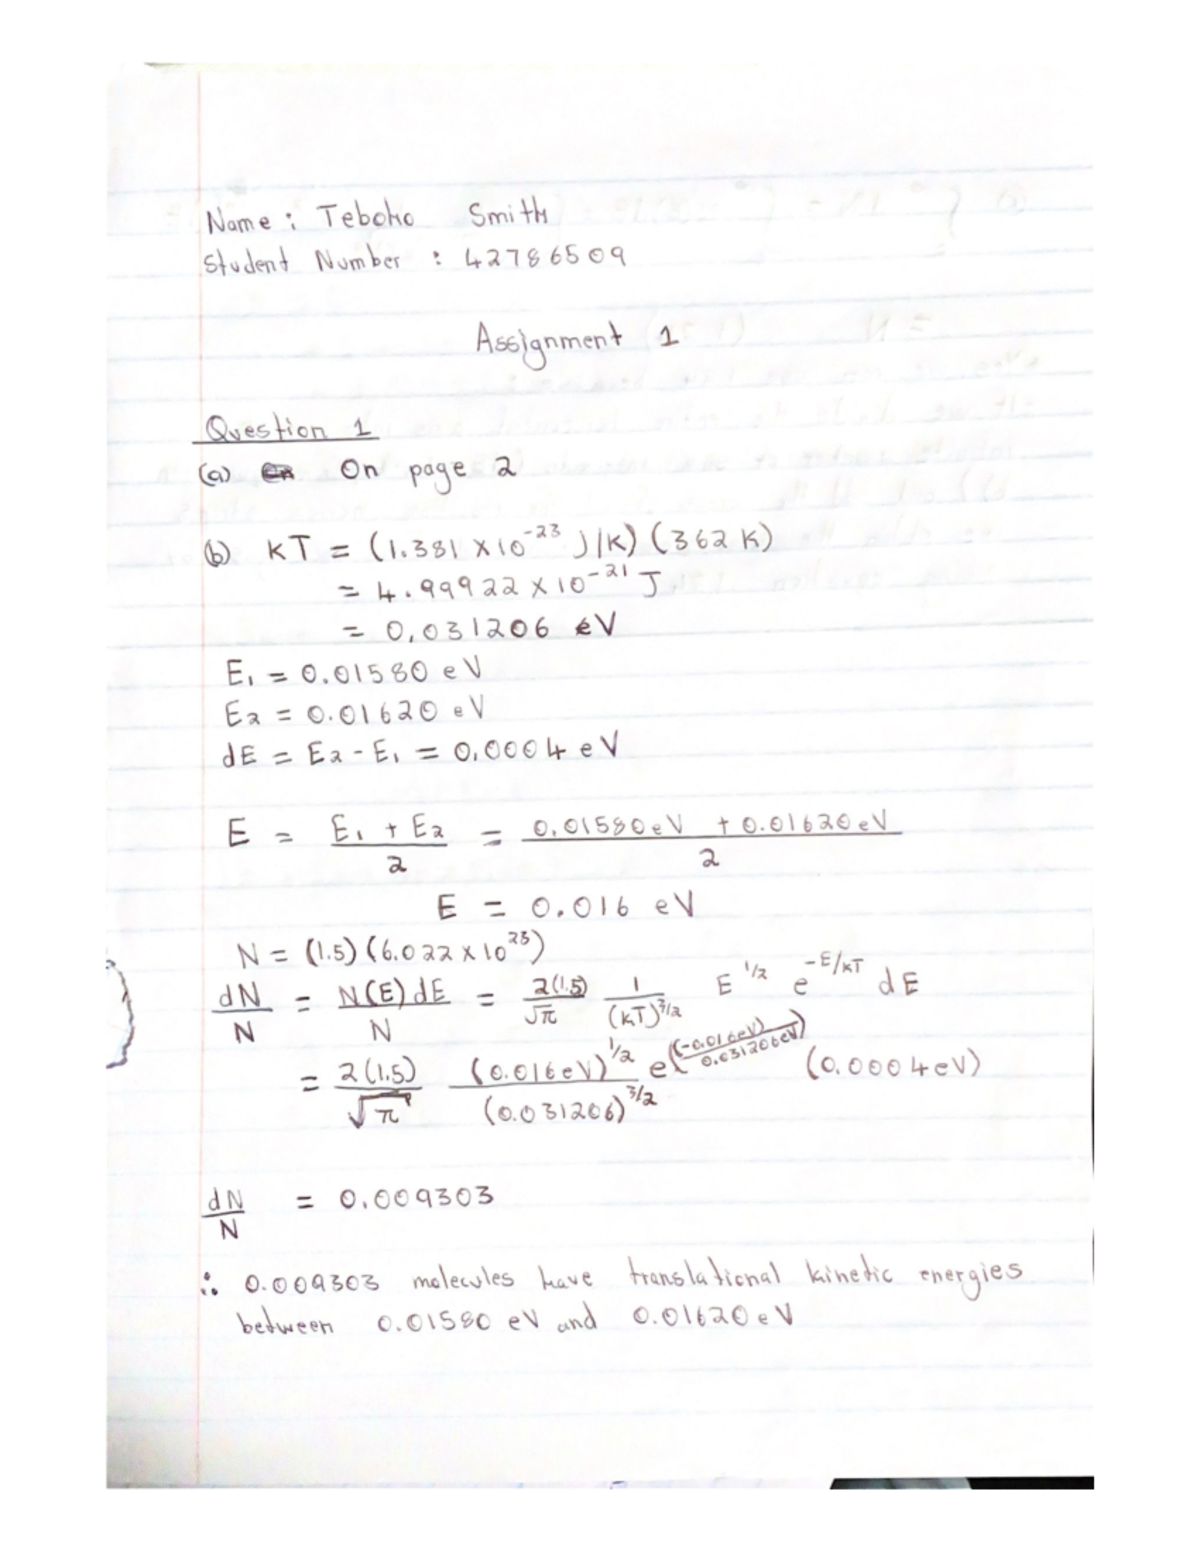 Name : Teboho Smith
Student Number : 42786509
Assignment 1
Question 1
(a) On page 2
(b) kT = (1.381 x 10^-23 J/K) (362 K)
= 4.99922 x 10^-21 J
= 0,031206 eV
E1 = 0.01580 eV
E2 = 0.01620 eV
dE = E2 - E1 = 0,0004 eV
E = (E1 + E2)/2 = (0,01580 eV + 0.01620 eV)/2
E = 0.016 eV
N = (1.5) (6.022 x 10^23)
dN/N = N(E)dE/N = 2(1.5)/√π 1/(kT)^3/2 E^1/2 e^-E/kT dE
= 2(1.5)/√π (0.016 eV)^1/2/(0.031206)^3/2 e^((-0.016 eV)/(0.031206 eV)) (0.0004 eV)
dN/N = 0.009303
∴ 0.009303 molecules have translational kinetic energies
between 0.01580 eV and 0.01620 eV